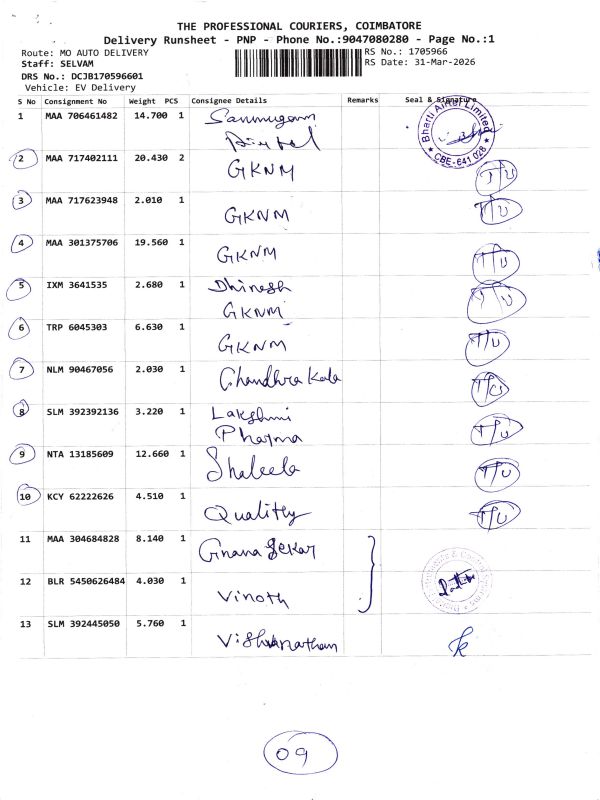 THE PROFESSIONAL COURIERS, COIMBATORE
Delivery Runsheet - PNP - Phone No.:9047080280 - Page No.:1
Route: MO AUTO DELIVERY
RS No.: 1705966
Staff: SELVAM
RS Date: 31-Mar-2026
DRS No.: DCJB170596601
Vehicle: EV Delivery
S No Consignment No Weight PCS Consignee Details Remarks Seal & Signature
1 MAA 706461482 14.700 1 Sanmugam
Airtel
Bharti Airtel Limited
★ CBE-641 028 ★
2 MAA 717402111 20.430 2 GKNM T/U
3 MAA 717623948 2.010 1 GKNM T/U
4 MAA 301375706 19.560 1 GKNM T/U
5 IXM 3641535 2.680 1 Dhinesh
GKNM T/U
6 TRP 6045303 6.630 1 GKNM T/U
7 NLM 90467056 2.030 1 Chandhra Kala T/U
8 SLM 392392136 3.220 1 Lakshmi
Pharma T/U
9 NTA 13185609 12.660 1 Shaleela T/U
10 KCY 62222626 4.510 1 Qualitly T/U
11 MAA 304684828 8.140 1 Gnana Sekar
12 BLR 5450626484 4.030 1 Vinoth
13 SLM 392445050 5.760 1 Vishwanathan
09